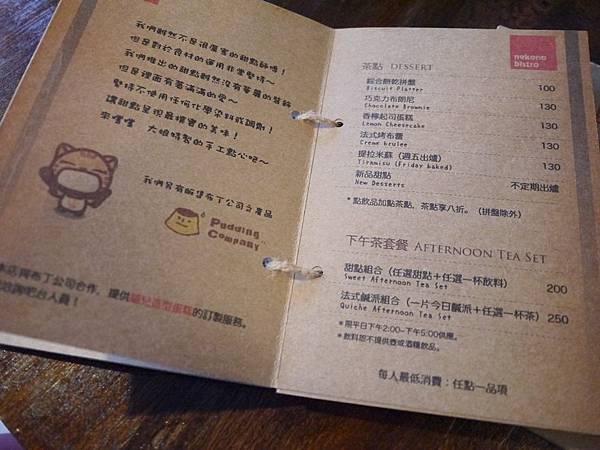 我們雖然不是很厲害的甜點師傅！
但是對於食材的運用非常堅持~
我們推出的甜點雖然沒有華麗的裝飾
但是裡面有著滿滿的愛~
堅持不使用任何化學染料或調劑！
讓甜點呈現最樸實的美味！
來嚐嚐 大姐特製的手工點心吧~
我們另有販售布丁公司之產品
Pudding
Company
本店與布丁公司合作，提供嬰兒造型蛋糕的訂製服務。
洽詢吧台人員！
nekono
bistro
茶點 DESSERT
綜合餅乾拼盤 100
Biscuit Platter
巧克力布朗尼 130
Chocolate Brownie
香檸起司蛋糕 130
Lemon Cheesecake
法式烤布蕾 130
Creme brulee
提拉米蘇（週五出爐） 130
Tiramisu (Friday baked)
新品甜點 不定期出爐
New Desserts
*點飲品加點茶點，茶點享八折。（拼盤除外）
下午茶套餐 AFTERNOON TEA SET
甜點組合（任選甜點＋任選一杯飲料） 200
Sweet Afternoon Tea Set
法式鹹派組合（一片今日鹹派＋任選一杯茶） 250
Quiche Afternoon Tea Set
*限平日下午2:00~下午5:00供應。
*飲料恕不提供壺或酒精飲品。
每人最低消費：任點一品項